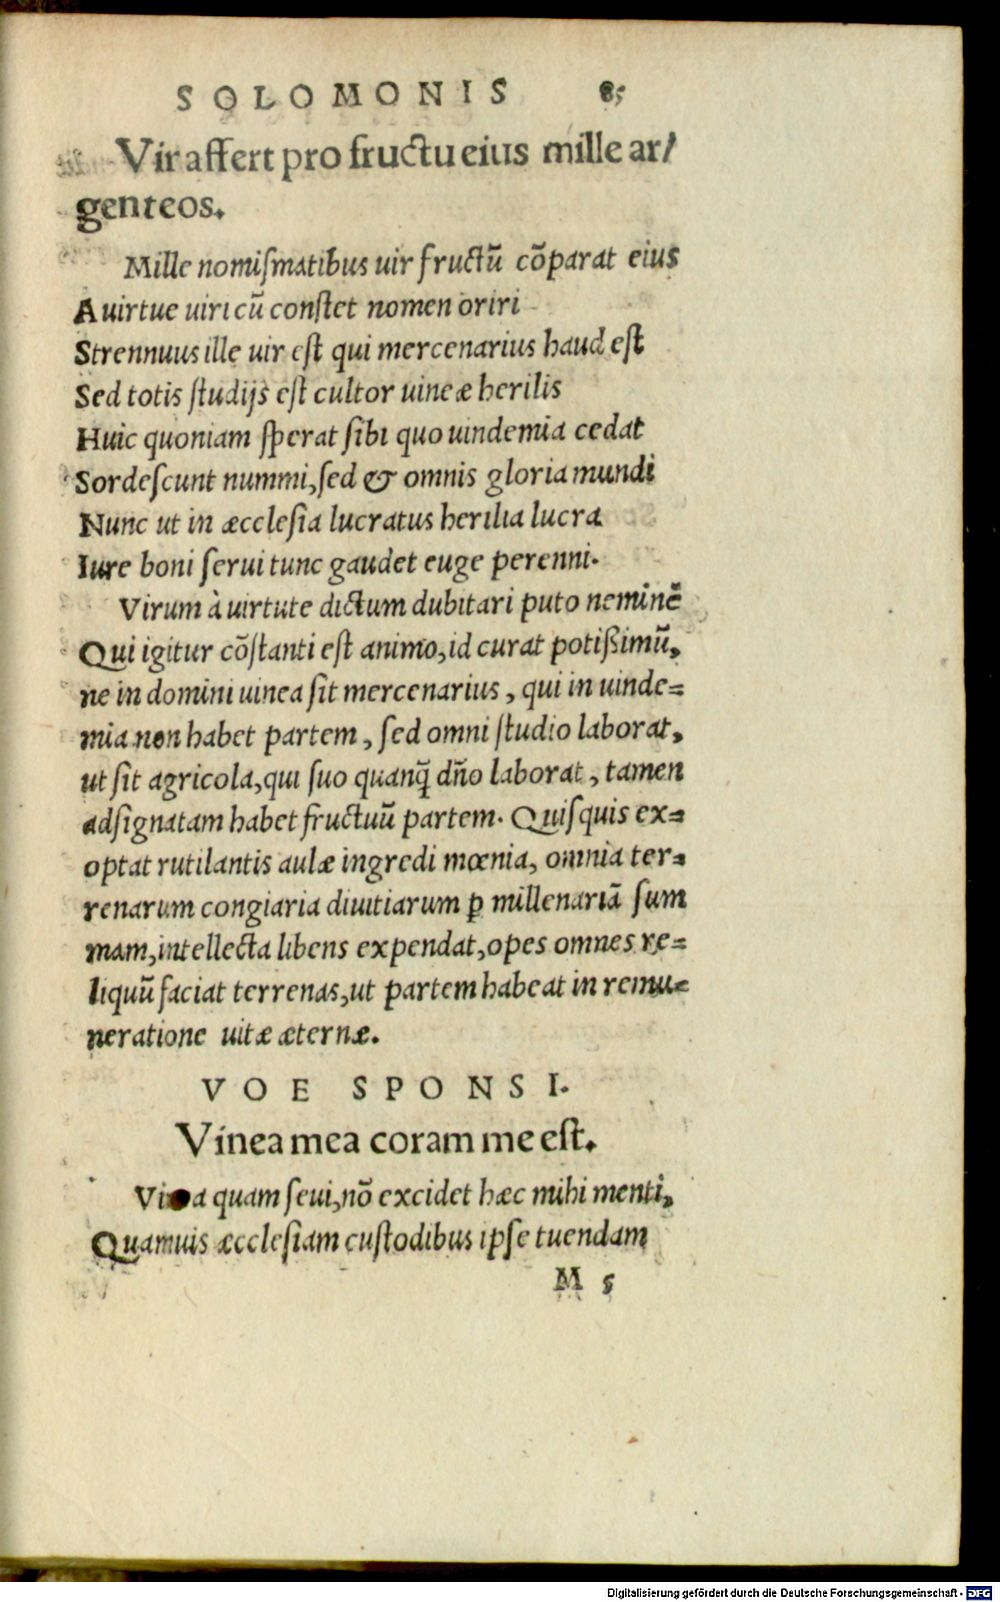 SOLOMONIS 85
Vir affert pro fructu eius mille ar/
genteos.
Mille nomiſmatibus uir fructũ cõparat eius
A uirtue uiri cũ conſtet nomen oriri
Strennuus ille uir eſt qui mercenarius haud eſt
Sed totis ſtudijs eſt cultor uineæ herilis
Huic quoniam ſperat ſibi quo uindemia cedat
Sordeſcunt nummi, ſed & omnis gloria mundi
Nunc ut in æccleſia lucratus herilia lucra
Iure boni ſerui tunc gaudet euge perenni.
Virum à uirtute dictum dubitari puto neminẽ
Qui igitur cõſtanti eſt animo, id curat potißimũ,
ne in domini uinea ſit mercenarius, qui in uinde=
mia non habet partem, ſed omni ſtudio laborat,
ut ſit agricola, qui ſuo quanq̃ dño laborat, tamen
adſignatam habet fructuũ partem. Quiſquis ex=
optat rutilantis aulæ ingredi mœnia, omnia ter=
renarum congiaria diuitiarum ꝑ millenariã ſum
mam, intellecta libens expendat, opes omnes re=
liquũ faciat terrenas, ut partem habeat in remu=
neratione uitæ æternæ.
VOE SPONSI.
Vinea mea coram me eſt.
a quam ſeui, nõ excidet hæc mihi menti,
Quamuis æccleſiam cuſtodibus ipſe tuendam
M 5
Digitalisierung gefördert durch die Deutsche Forschungsgemeinschaft - DFG